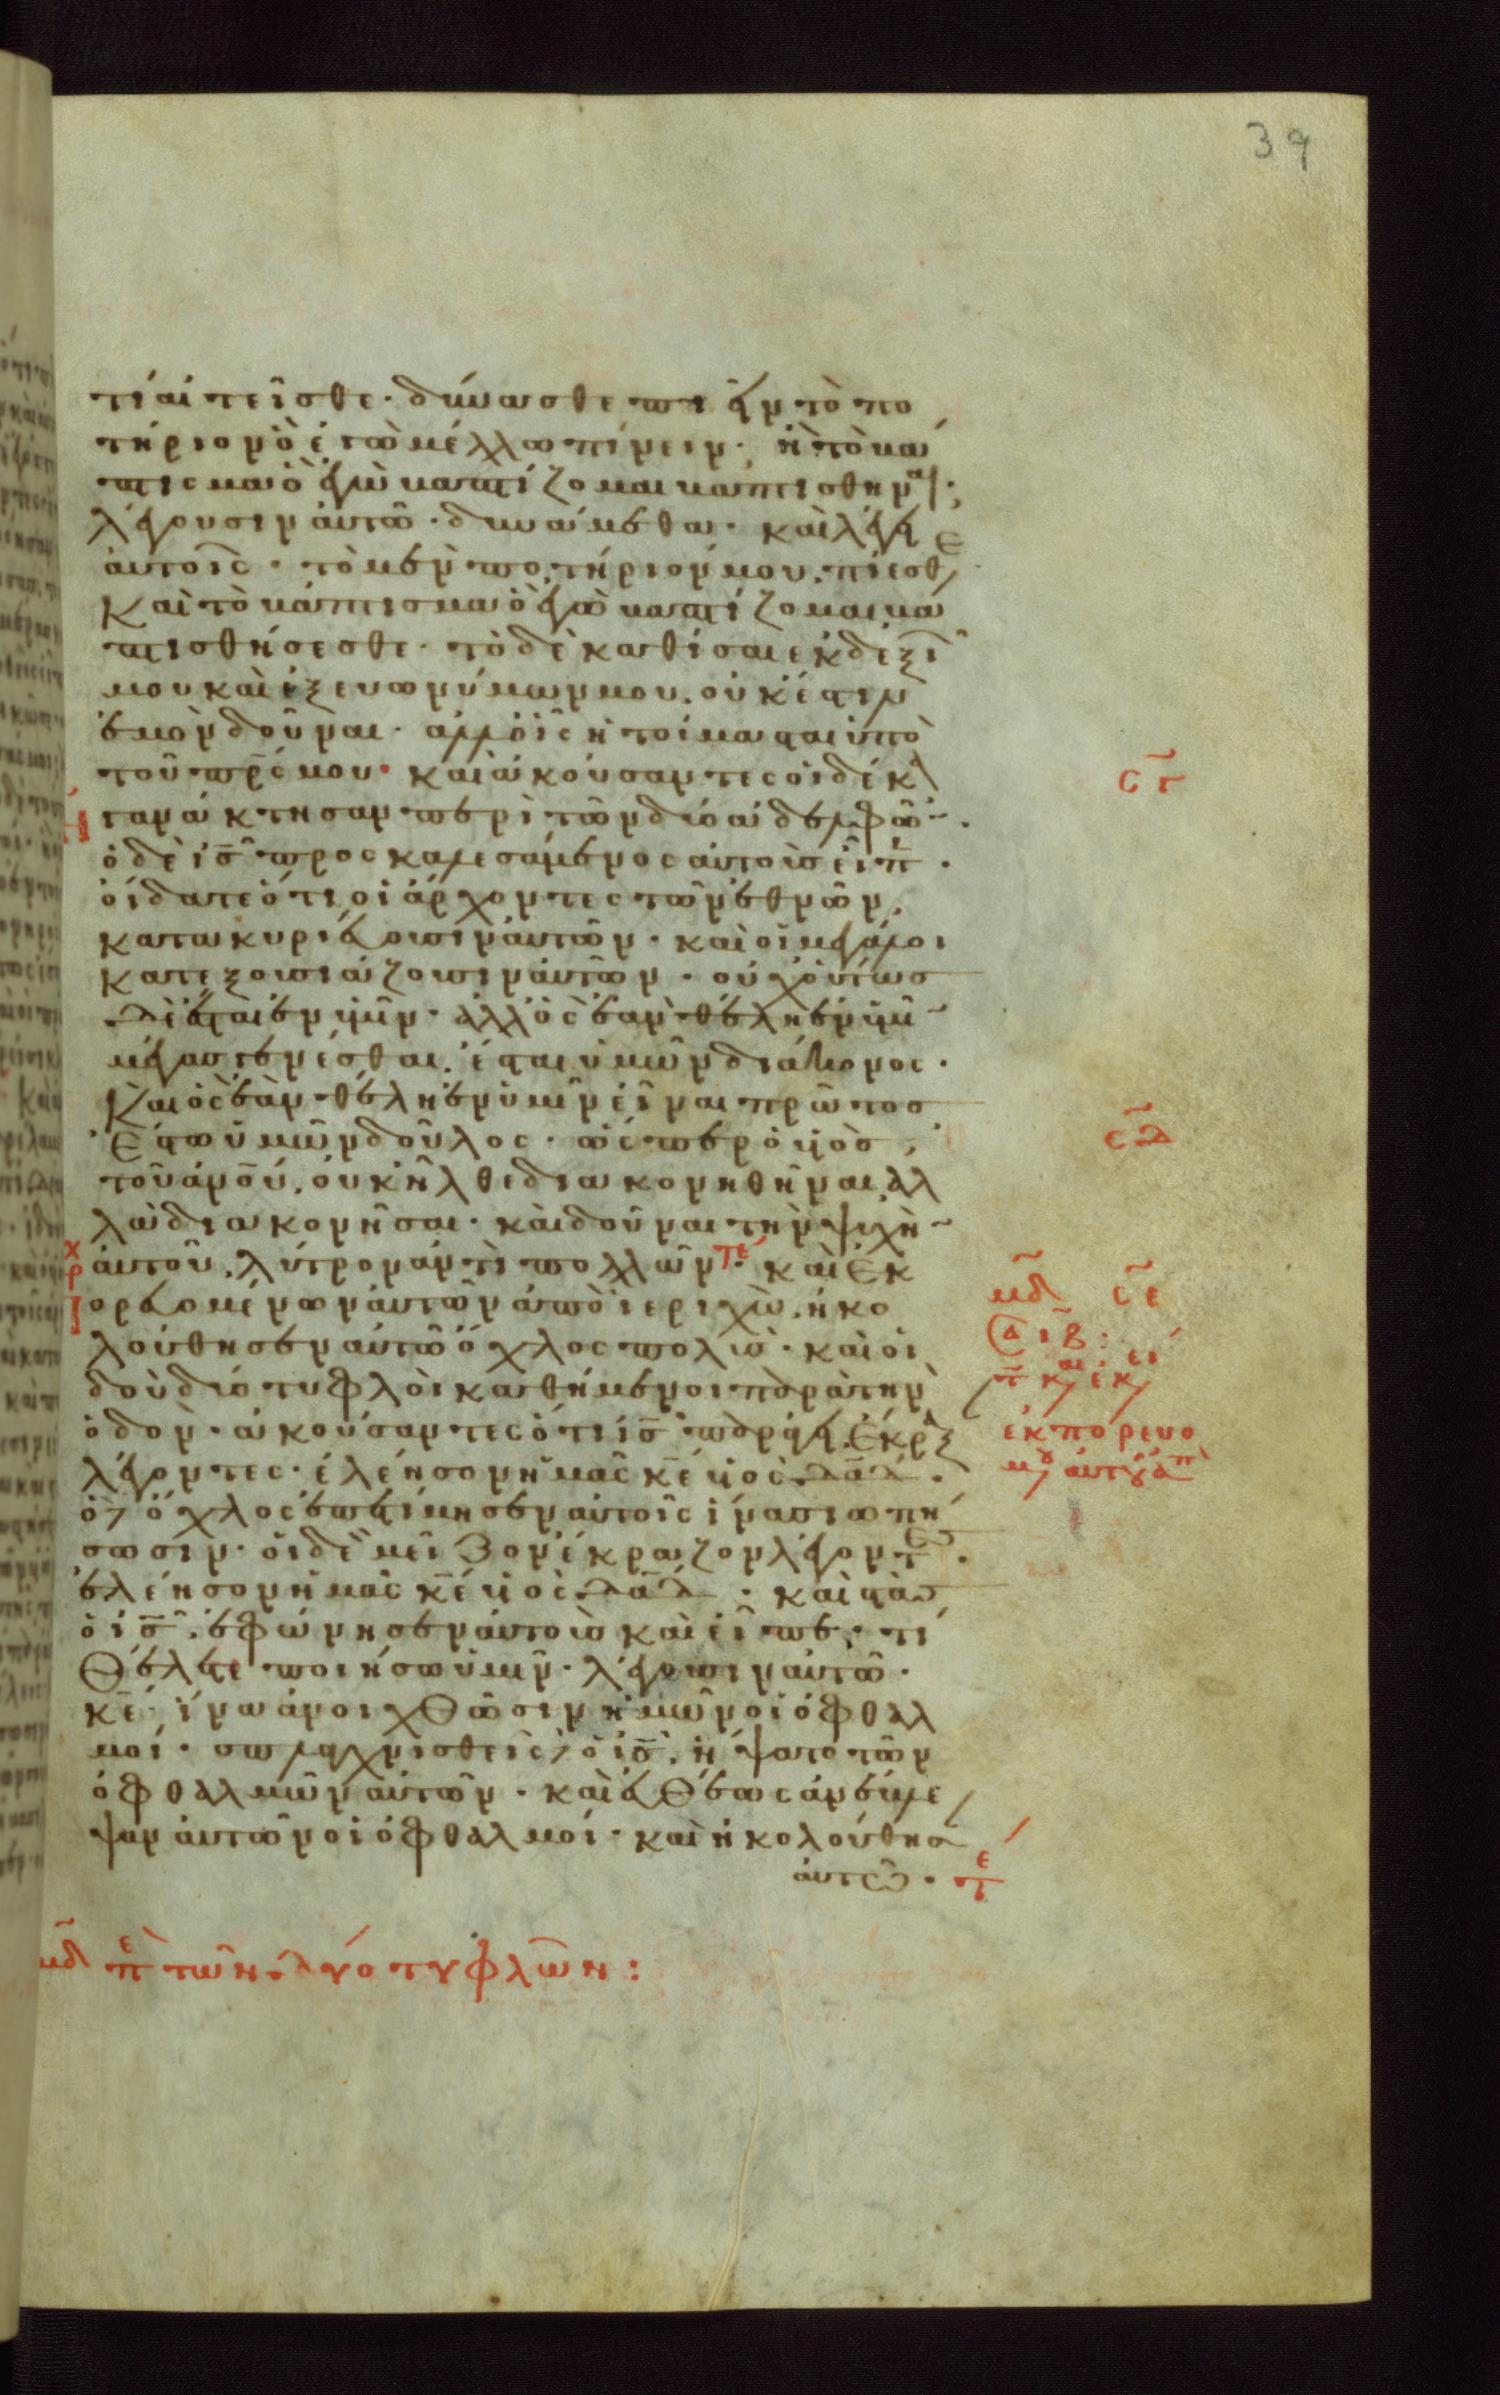 39
τί αἰτεῖσθε · δύνασθε πιεῖν τὸ πο
τήριον ὃ ἐγὼ μέλλω πίνειν · ἢ τὸ βά
πτισμα ὃ ἐγὼ βαπτίζομαι βαπτισθῆναι ·
λέγουσιν αὐτῶ · δυνάμεθα · καὶ λέγει
αὐτοῖς · τὸ μὲν ποτήριόν μου πίεσθε
Καὶ τὸ βάπτισμα ὃ ἐγὼ βαπτίζομαι βα
πτισθήσεσθε · τὸ δὲ καθίσαι ἐκ δεξι
μου καὶ ἐξ ευωνύμων μου, οὐκ ἔστιν
ἐμὸν δοῦναι · ἀλλ οἷς ἡτοίμασται ὑπὸ
τοῦ πρς μου · καὶ ἀκούσαντες οἱ δέκα
ἠγανάκτησαν περὶ τῶν δύο ἀδελφῶν ·
ὁ δὲ ις προσκαλεσάμενος αὐτοὺς εἶπ ·
οἴδατε ὅτι οἱ ἄρχοντες τῶν ἐθνῶν
κατακυριεύουσιν αὐτῶν · καὶ οἱ μεγάλοι
κατεξουσιάζουσιν αὐτῶν · οὐχ οὕτως
δὲ ἔσται ἐν ὑμῖν · ἀλλ ὃς ἐὰν θέλη ἐν ὑμῖ
μέγας γενέσθαι, ἔσται ὑμῶν διάκονος ·
Καὶ ὃς ἐὰν θέλη ἐν ὑμῖν εἶναι πρῶτος
Ἔστω ὑμῶν δοῦλος · ὥσπερ ὁ υἱὸς
τοῦ ανου, οὐκ ἦλθε διακονηθῆναι, ἀλ
λὰ διακονῆσαι · καὶ δοῦναι τὴν ψυχὴ
αὐτοῦ, λύτρον ἀντὶ πολλῶν · τε καὶ Ἐκ
πορευομένων αὐτῶν ἀπὸ ἱεριχὼ, ἠκο
λούθησεν αὐτῶ ὄχλος πολύς · καὶ ἰ
δοὺ δύο τυφλοὶ καθήμενοι παρὰ τὴν
ὁδὸν · ἀκούσαντες ὅτι ις παράγει, Ἔκραξ
λέγοντες · ἐλέησον ἡμᾶς κε υἱὸς δαδ ·
ὁ δὲ ὄχλος ἐπετίμησεν αὐτοῖς ἵνα σιωπή
σωσιν · οἱ δὲ μεῖζον ἔκραζον λέγοντες ·
ἐλέησον ἡμᾶς κε υἱὸς δαδ · καὶ στὰς
ὁ ις, ἐφώνησεν αὐτοὺς καὶ εἶπε · τί
Θέλετε ποιήσω ὑμῖν · λέγουσιν αὐτῶ ·
κε · ἵνα ἀνοιχθῶσιν ἡμῶν οἱ ὀφθαλ
μοί · σπλαγχνισθεὶς δὲ ὁ ις, ἥψατο τῶν
ὀφθαλμῶν αὐτῶν · καὶ εὐθέως ἀνέβλε
ψαν αὐτῶν οἱ ὀφθαλμοί · καὶ ἠκολούθησ
αὐτῶ ·
σγ
σδ
μδ σε
ἐκπορευο
μδ πε τῶν δύο τυφλῶν :